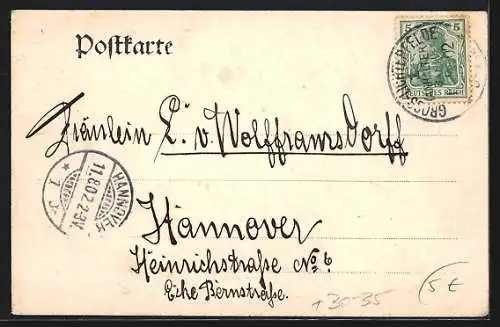 Postkarte
5 5
DEUTSCHES REICH
GROSS-LICHTERFELDE
Fräulein L. v. Wolfframsdorff
HANNOVER
11.8.02.2-3V.
* 1. y.
Hannover
Heinrichstraße No. 6
Ecke Bernstraße.
+30-35
5 €